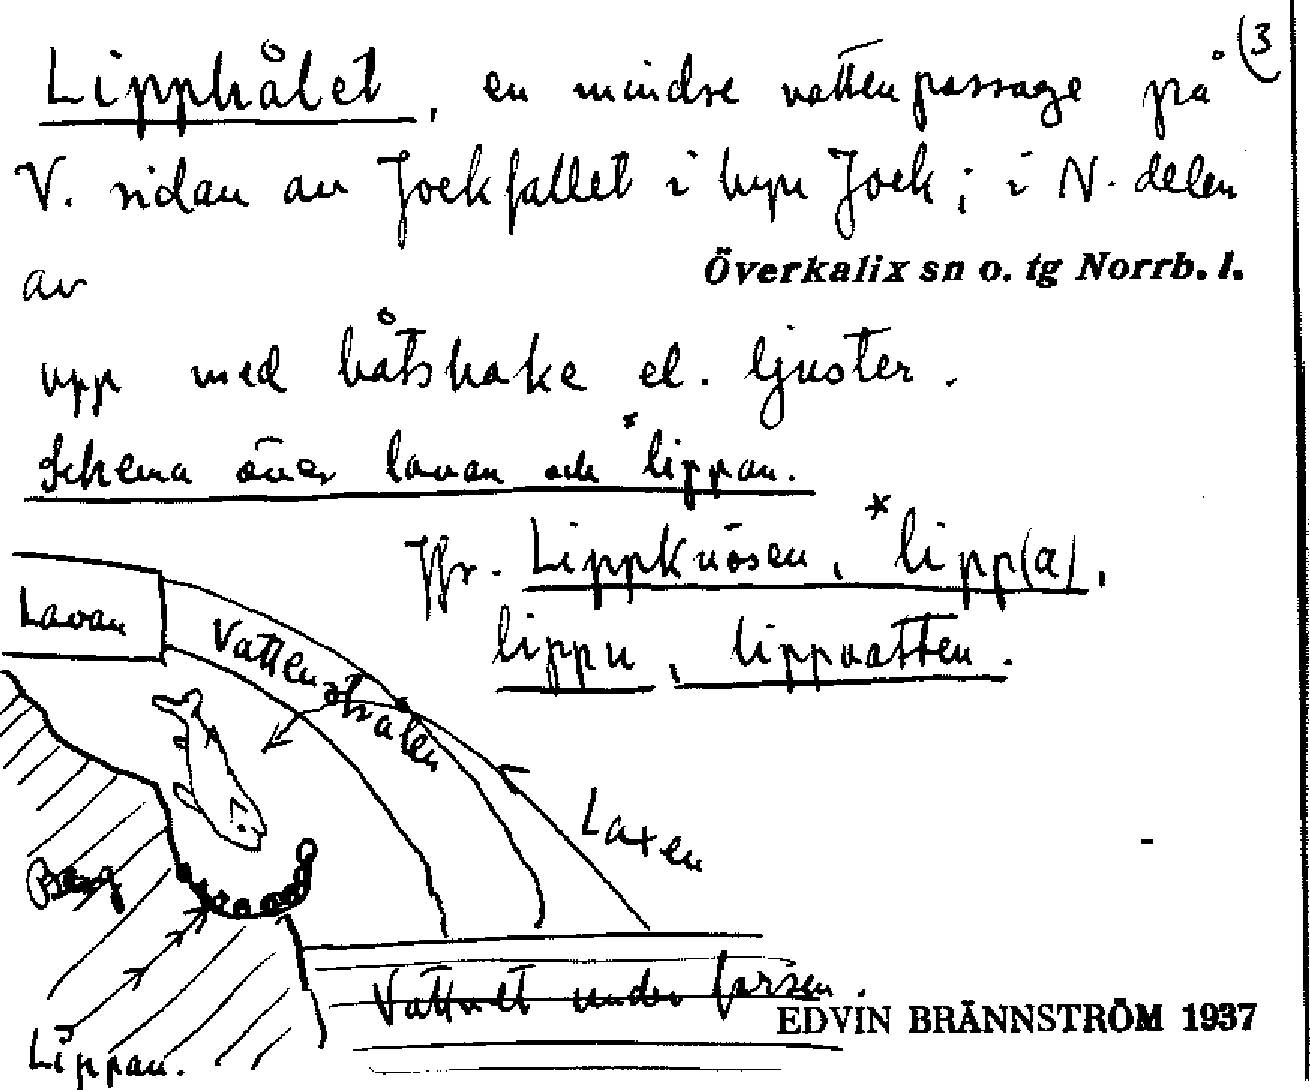 (3
Lipphålet, en mindre vattenpassage på
V. sidan av Jockfallet i byn Jock; i N. delen
av Överkalix sn o. tg Norrb. l.
upp med båtshake el. ljuster.
Schema över lavan och *lippan.
Jfr. Lippknösen, *lipp(a),
lippu, lippvatten.
Lavan
Vattenstrålen
Laxen
Berg
Vattnet under forsen.
Lippan.
EDVIN BRÄNNSTRÖM 1937